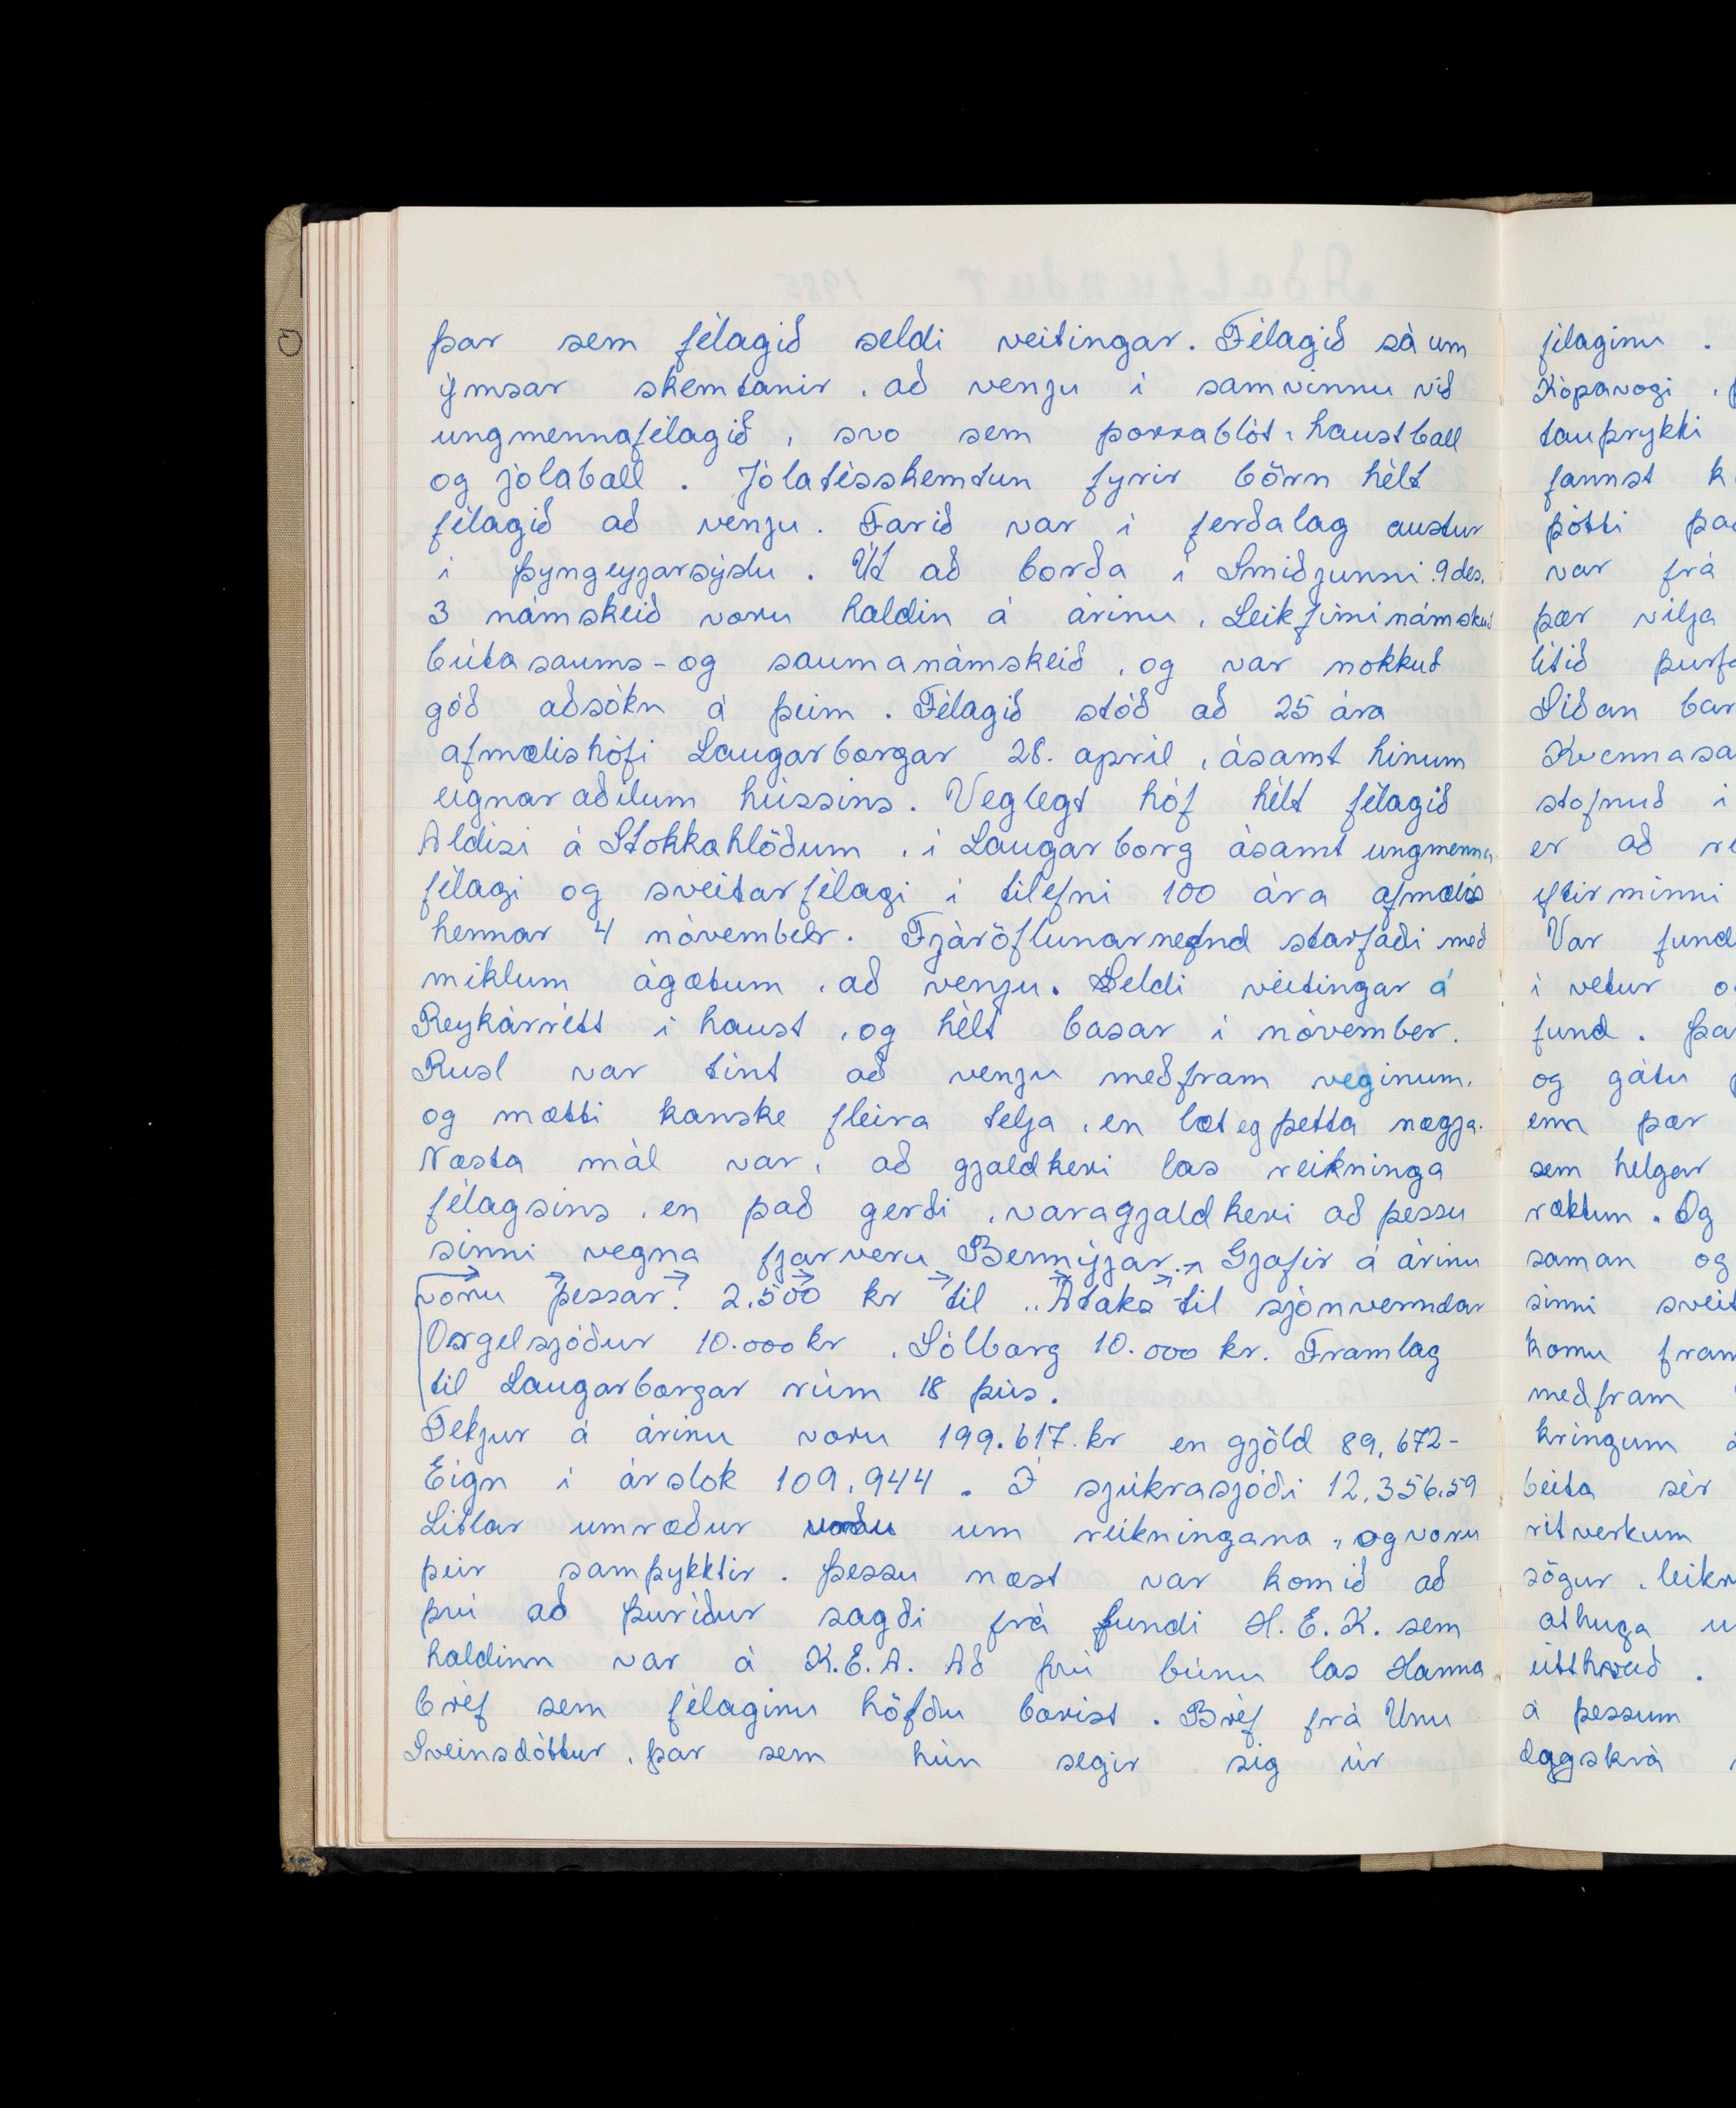 þar sem félagið seldi veitingar. Félagið sá um
ýmsar skemtanir, að venju í samvinnu við
ungmennafélagið, svo sem þorrablót, haustball
og jólaball. Jólatésskemtun fyrir börn hélt
félagið að venju. Farið var í ferðalag austur
í þyngeyjarsýslu. Út að borða í Smiðjunni 9 des.
3 námskeið voru haldin á árinu, Leikfiminámskeið
bútasaums- og saumanámskeið, og var nokkuð
góð aðsókn á þeim. Félagið stóð að 25 ára
afmælishófi Laugarborgar 28. apríl, ásamt hinum
eignaraðilum hússins. Veglegt hóf hélt félagið
Aldísi á Stokkahlöðum, í Laugarborg ásamt ungmenna
félagi og sveitarfélagi í tilefni 100 ára afmælis
hennar 4 nóvember. Fjáröflunarnefnd starfaði með
miklum ágætum, að venju. Seldi veitingar á
Reykárrétt í haust, og hélt basar í nóvember.
Rusl var tínt að venju meðfram veginum,
og mætti kanske fleira telja, en læt eg þetta nægja.
Næsta mál var, að gjaldkeri las reikninga
félagsins, en það gerði, varagjaldkeri að þessu
sinni vegna fjarveru Bennýjar. Gjafir á árinu
voru þessar: 2.500 kr til „Átaks til sjónverndar
Orgelsjóður 10.000 kr, Sólborg 10.000 kr. Framlag
til Laugarborgar rúm 18 þús.
Tekjur á árinu voru 199.617 kr en gjöld 89,672-
Eign í árslok 109,944. Í sjúkrasjóði 12,356,59
Litlar umræður voru um reikningana, og voru
þeir samþykktir. Þessu næst var komið að
því að Þuríður sagði frá fundi H.E.K. sem
haldinn var á K.E.A. Að því búnu las Hanna
bréf sem félaginu höfðu borist. Bréf frá Unu
Sveinsdóttur, þar sem hún segir sig úr
félaginu.
Kópavogi,
tauþrykki
fannst
þótti
var frá
þær vilja
lítið
Síðan
stofnuð í
er að
eftirminni
Var
í vetur
fund.
og gátu
enn þær
sem helgar
ræktun. Og
saman og
sinni
komu
meðfram
kringum
beita sér
ritverkum
sögur,
athuga
á þessum
dagskrá